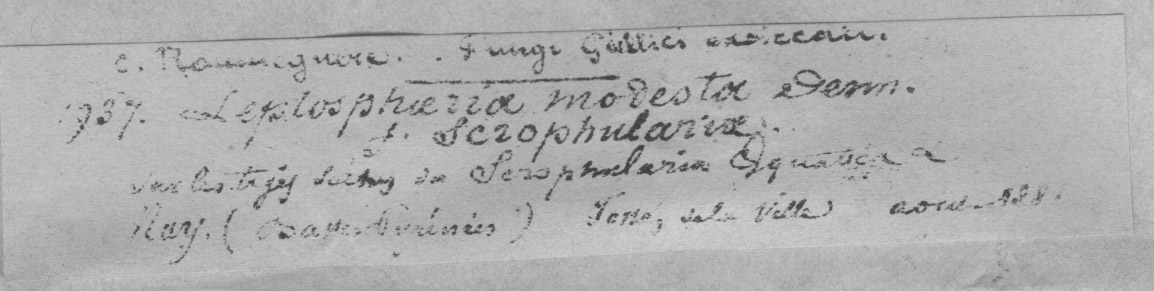 C. Roumeguère. . Fungi Gallici exsiccati.
1937. Leptosphæria modesta Desm.
f. Scrophulariæ.
Sur les tiges sèches du Scrophularia Aquatica à
Nay. (Basses Pyrénées) Fossés de la Ville aout 188